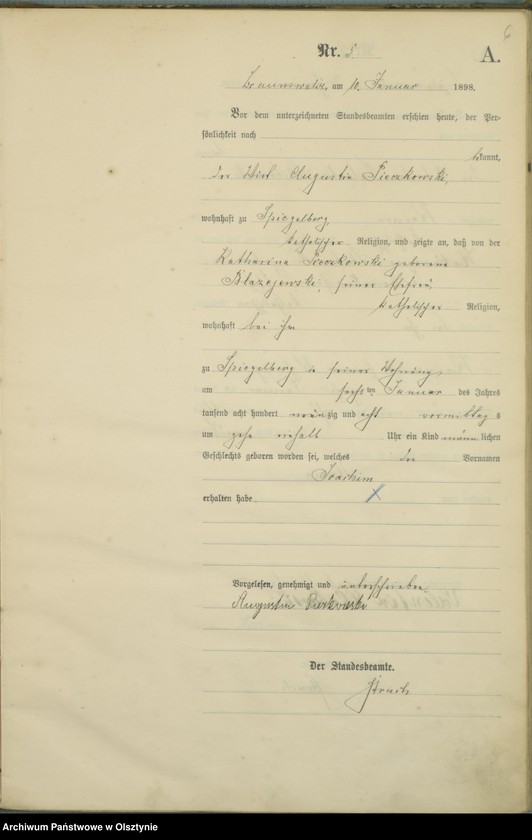 6
Nr. 5. A.
Braunswalde, am 10. Januar 1898.
Vor dem unterzeichneten Standesbeamten erschien heute, der Per-
sönlichkeit nach
bekannt,
der Wirt Augustin Pieczkowski,
wohnhaft zu Spiegelberg,
katholischer Religion, und zeigte an, daß von der
Katharina Pieczkowski geborene
Blazejewski, seiner Ehefrau,
katholischer Religion,
wohnhaft bei ihm
zu Spiegelberg in seiner Wohnung,
am sechsten Januar des Jahres
tausend acht hundert neunzig und acht vormittags
um Uhr ein Kind männlichen
Geschlechts geboren worden sei, welches den Vornamen
Joachim
erhalten habe
Vorgelesen, genehmigt und unterschrieben
Augustin
Der Standesbeamte.
Archiwum Państwowe w Olsztynie